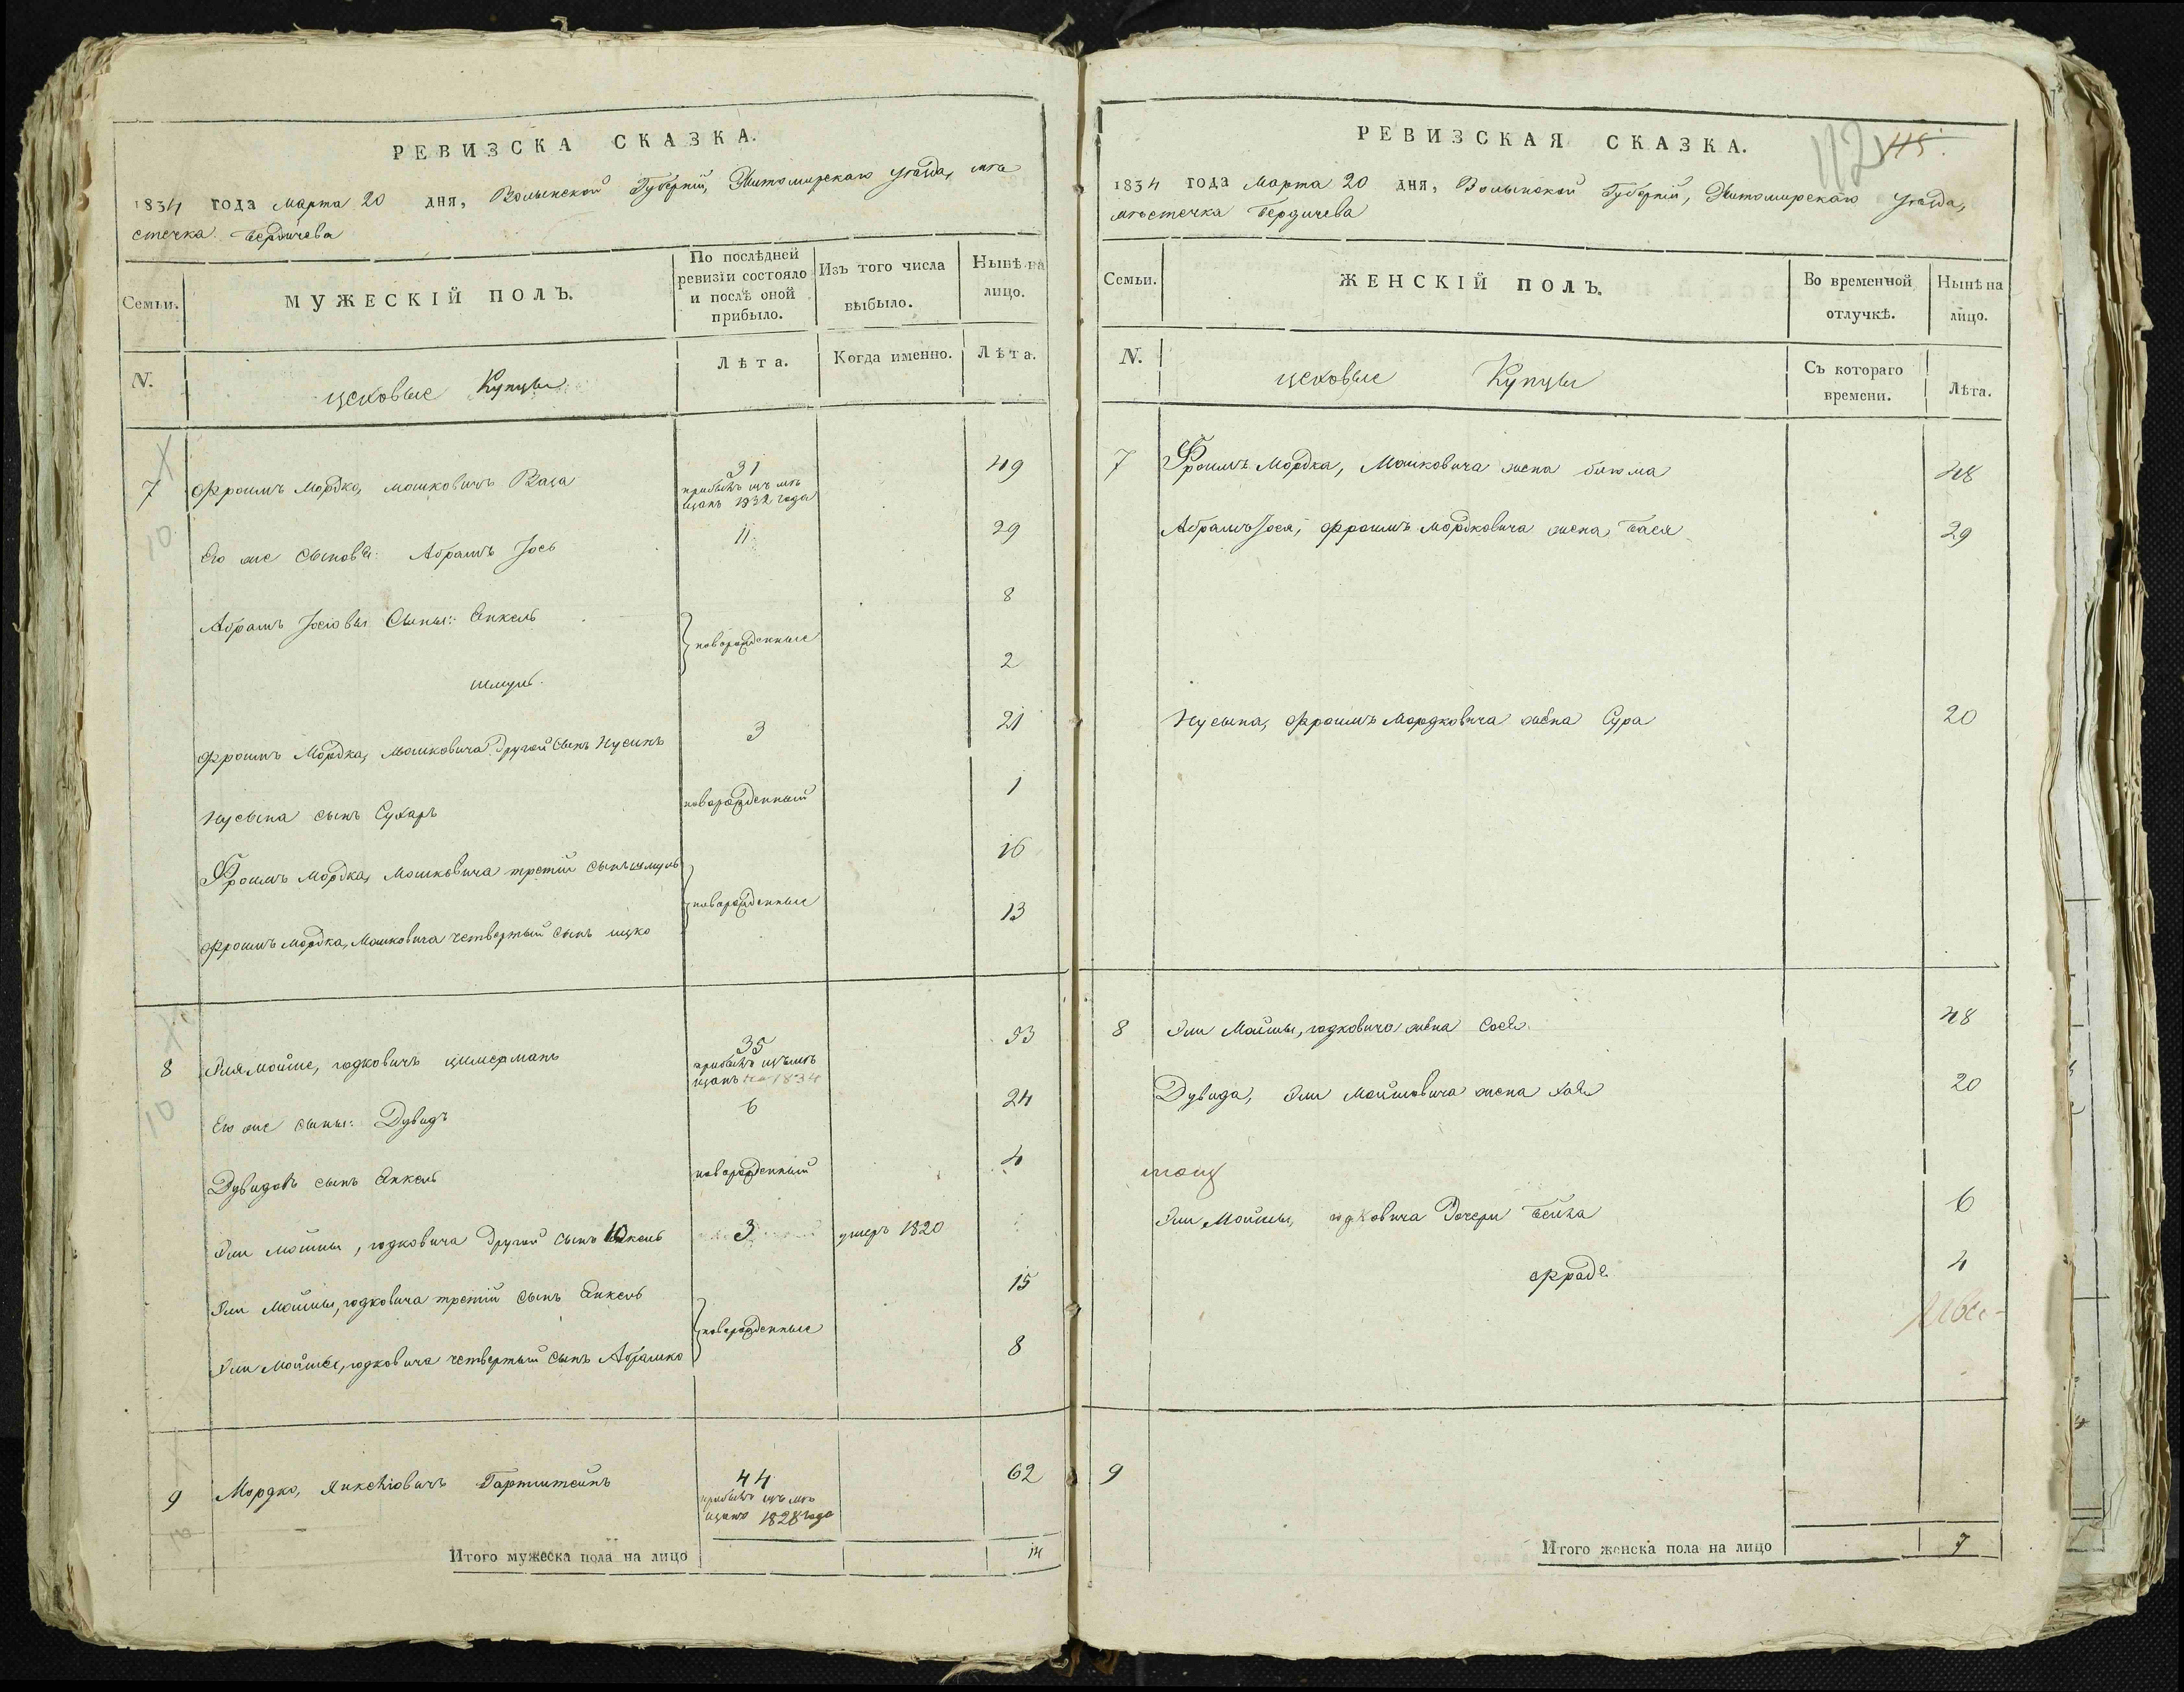 РЕВИЗСКА СКАЗКА.
1834 года Марта 20 дня, Волынской Губерніи, Житомирскаго уѣзда, мѣ
стечка Бердичева
Семьи.
МУЖЕСКІЙ ПОЛЪ.
По послѣдней ревизіи состояло и послѣ оной прибыло.
Изъ того числа выбыло.
Нынѣ на лицо.
N.
цеховые Купцы
Лѣта.
Когда именно.
Лѣта.
7 Фроимъ Мордко, Мошковичъ 31 49
прибылъ изъ мѣ
щанъ 1832 года
10
Его же Сыновья: Абрамъ Іось 11 29
Абрамъ Іосіовы Сыны: Янкель 8
новорожденные
Шмуль 2
Фроимъ Мордка, Мошковича другой Сынъ Нусинъ 3 21
Нусына сынъ Сухаръ новорожденный 1
Фроимъ Мордка, Мошковича третій сынъ Шмуль 16
новорожденные
Фроимъ Мордка, Мошковича четвертый Сынъ Ицко 13
8 Эля Мойше, Юдковичъ Цимерманъ 35 53
прибылъ изъ мѣ
щанъ 1834
10
Его же сыны: Дувидъ 6 24
Дувидовъ сынъ Янкель новорожденный 4
Эли Мойшы, Юдковича другой Сынъ 3 умеръ 1820
Эли Мойшы, Юдковича третій Сынъ Янкель 15
новорожденные
Эли Мойшы, Юдковича четвертый Сынъ Абрамко 8
9 Мордко, Янкеліовичъ Гартштейнъ 44 62
прибылъ изъ мѣ
щанъ 1828 года
Итого мужеска пола на лицо 14
РЕВИЗСКАЯ СКАЗКА.
112 115.
1834 года Марта 20 дня, Волынской Губерніи, Житомирскаго уѣзда,
мѣстечка Бердичева
Семьи.
ЖЕНСКІЙ ПОЛЪ.
Во временной отлучкѣ.
Нынѣ на лицо.
N.
цеховые Купцы
Съ котораго времени.
Лѣта.
7 Фроимъ Мордка, Мошковича жена Блюма 48
Абрамъ Іося, Фроимъ Мордковича жена Бася 29
Нусына, Фроимъ Мордковича жена Сура 20
8 Эли Мойшы, Юдковича жена 48
Дувида, Эли Мойшовича жена Хая 20
Эли Мойшы, Юдковича Дочери Бейла 6
Фрада 4
9
Итого женска пола на лицо 7